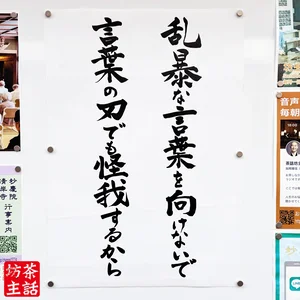 乱暴な言葉を向けないで
言葉の刃でも怪我するから
坊主
茶話
音声
毎朝
妙慶院
清岸寺
行事案内